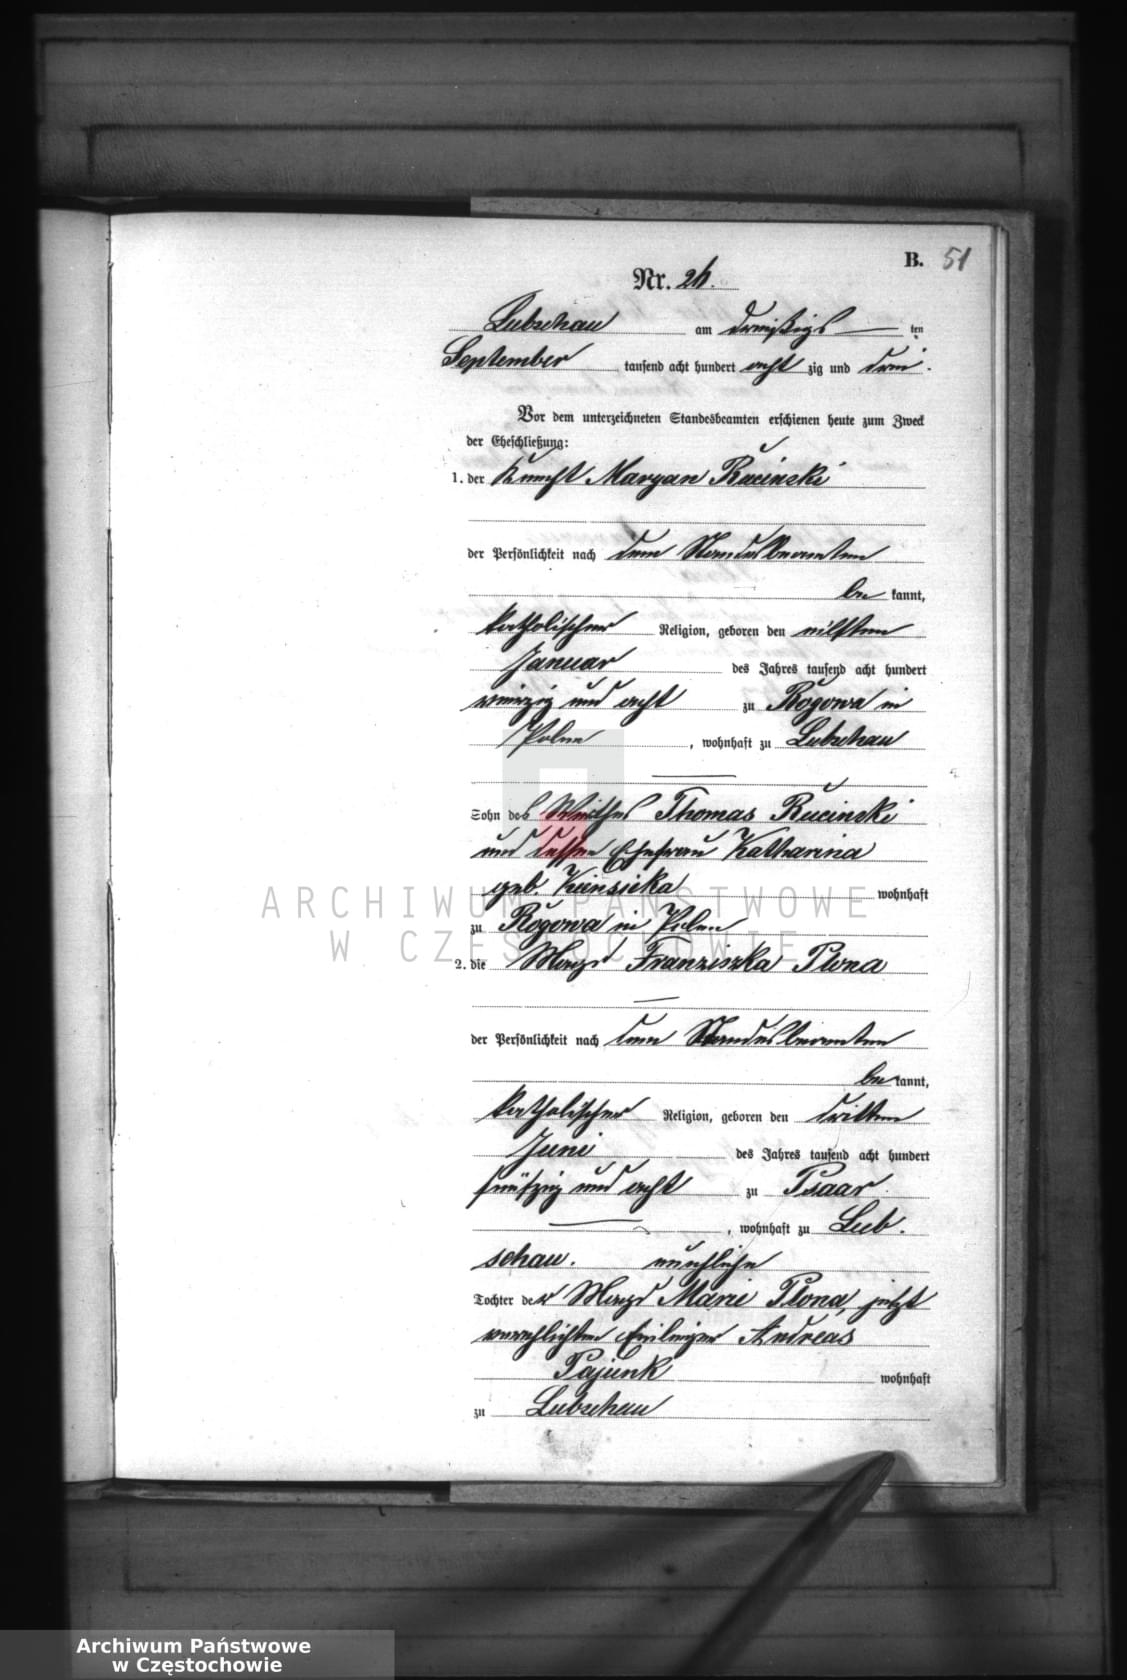 B. 51
Nr. 26.
Lubschau am dreißigs ten
September tausend acht hundert acht zig und drei.
Vor dem unterzeichneten Standesbeamten erschienen heute zum Zweck
der Eheschließung:
1. der Knecht Maryan Rucinski
der Persönlichkeit nach dem Standesbeamten
be kannt,
katholischer Religion, geboren den eilften
Januar des Jahres tausend acht hundert
vierzig und acht zu Rogowa in
Polen, wohnhaft zu Lubschau
Sohn des Wirthes Thomas Rucinski
und dessen Ehefrau Katharina
geb. wohnhaft
ARCHIWUM PAŃSTWOWE
zu Rogowa in Polen
W CZĘSTOCHOWIE
2. die Magd Franziszka Plona
der Persönlichkeit nach dem Standesbeamten
be kannt,
katholischer Religion, geboren den dritten
Juni des Jahres tausend acht hundert
fünfzig und acht zu Psaar
, wohnhaft zu Lub-
schau. unehliche
Tochter der Magd Marie Plona, jetzt
verehlichten Einlieger Andreas
Pajunk wohnhaft
zu Lubschau
Archiwum Państwowe
w Częstochowie